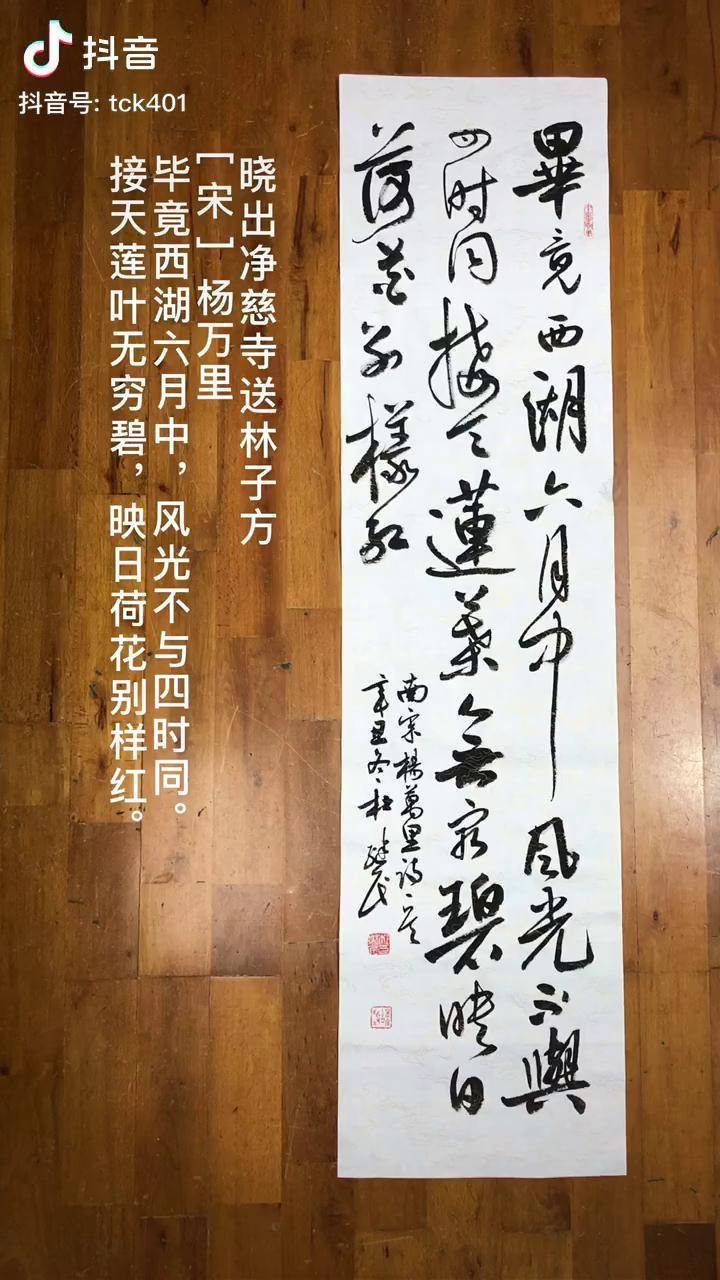 抖音
抖音号: tck401
晓出净慈寺送林子方
[宋]杨万里
毕竟西湖六月中，风光不与四时同。
接天莲叶无穷碧，映日荷花别样红。
畢竟西湖六月中风光不與
四时同接天蓮葉無穷碧映日
荷花别樣红
南宋楊萬里诗一首
辛丑冬杜